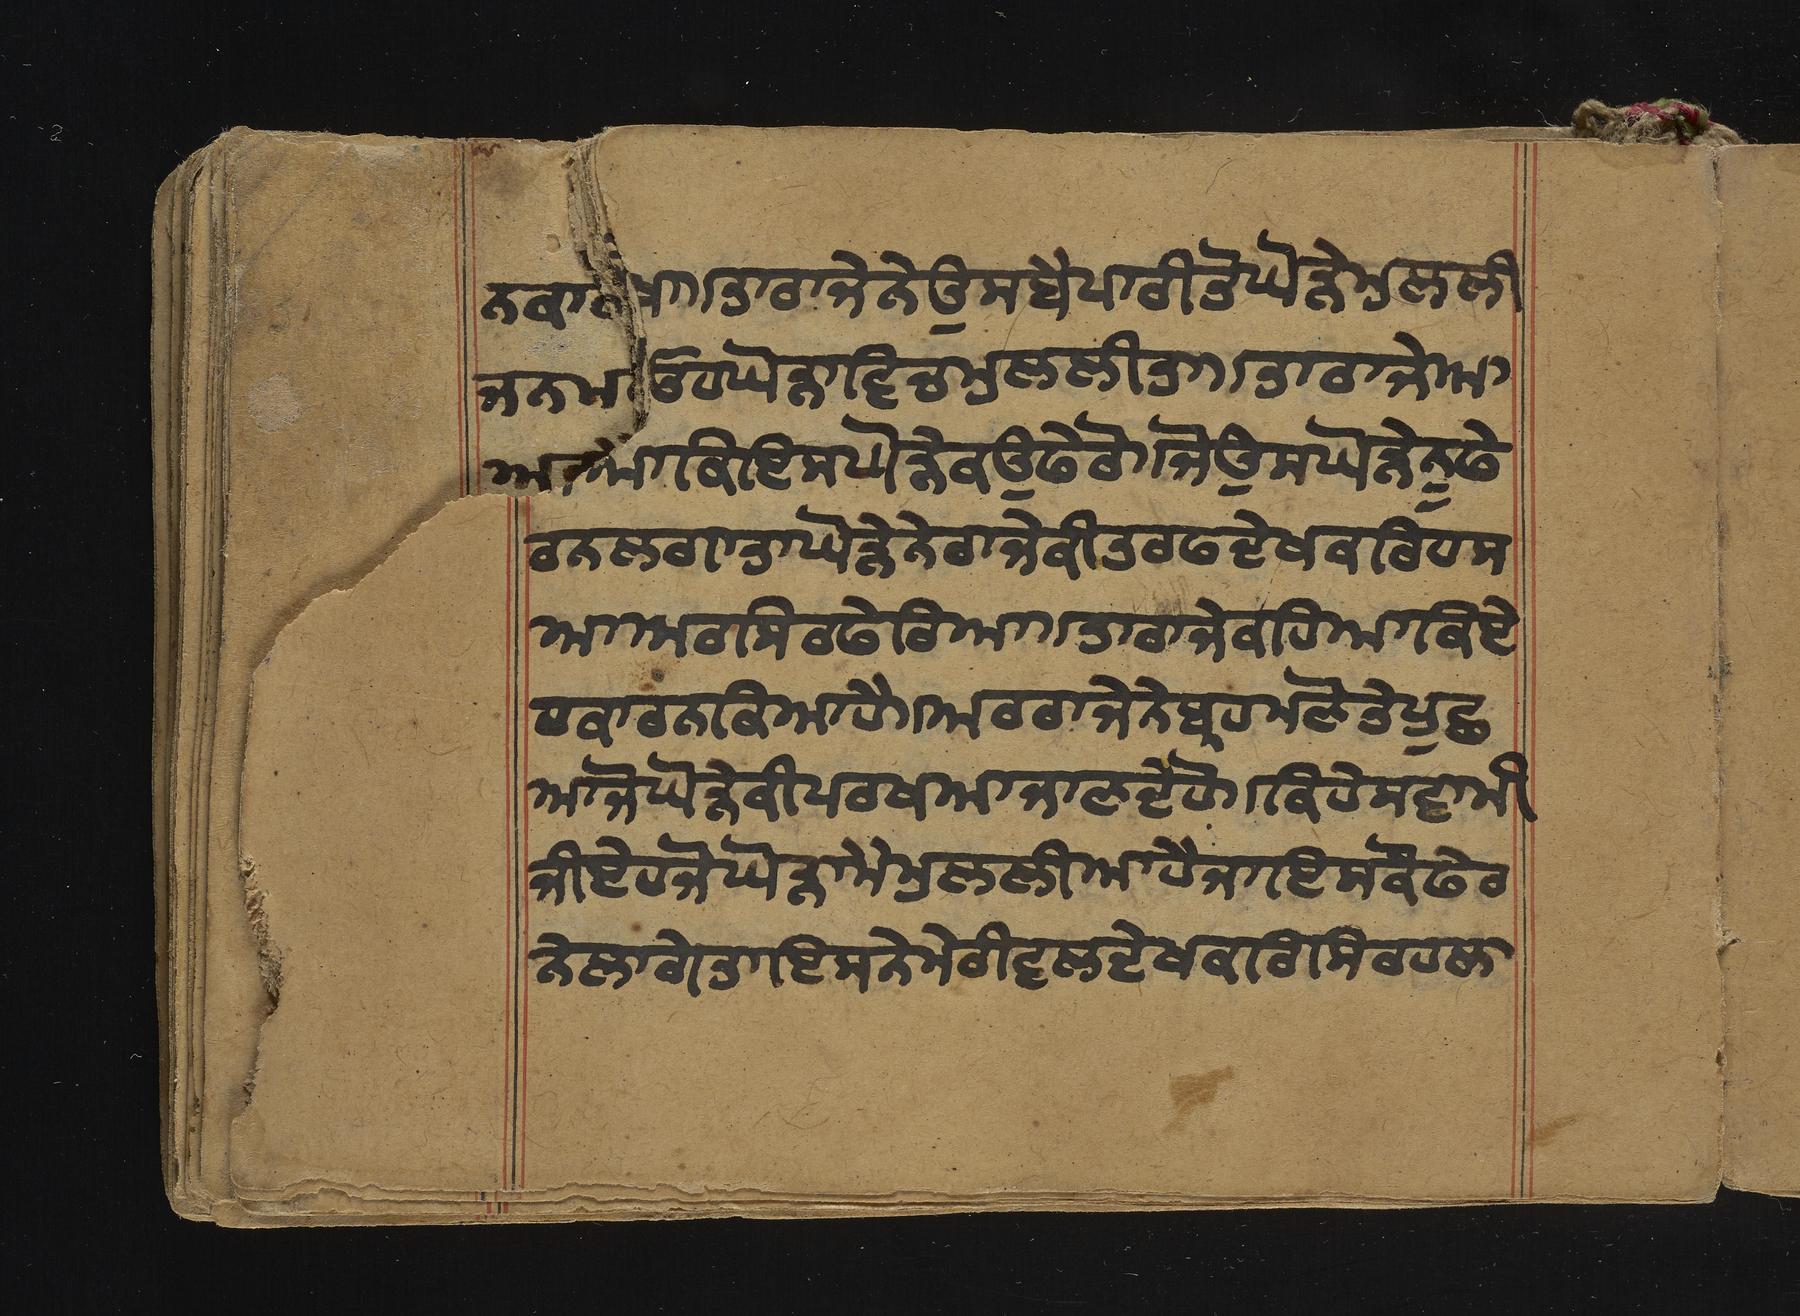 ਨਕਾ ਤਾਰਾਜੇਨੇਉਸਬੈਪਾਰੀਤੋਘੋੜੇਮੁਲਲੀ
ਜਨਮਾ ਓਹਘੋੜਾਵਿਚਮੁਲਲੀਤਾ।ਤਾਰਾਜੇਆ
ਆਕਿਇਸਘੋੜੇਕਉਫੇਰੋ।ਜੋਉਸਘੋੜੇਨੁਫੇ
ਰਨਲਗਾਤਾਘੋੜੇਨੇਰਾਜੇਕੀਤਰਫਦੇਖਕਰਿਹਸ
ਆਅਰਸਿਰਫੇਰਿਆ।ਤਾਰਾਜੇਕਹਿਆਕਿਏ
ਹਕਾਰਨਕਿਆਹੈ।ਅਰਰਾਜੇਨੇਬ੍ਰਹਮਣੋਤੇਪੁਛ
ਆਜੋਘੋੜੇਕੀਪਰਖਆਜਾਣਦੇਹੋ।ਕਿਹੇਸਵਾਮੀ
ਜੀਏਹਜੋਘੋੜਾਮੈਮੁਲਲੀਆਹੈਜਾਇਸਕੌਫੇਰ
ਨੇਲਾਗੇਤਾਇਸਨੇਮੇਰੀਵਲਦੇਖਕਰਿਸਿਰਹਲਾ